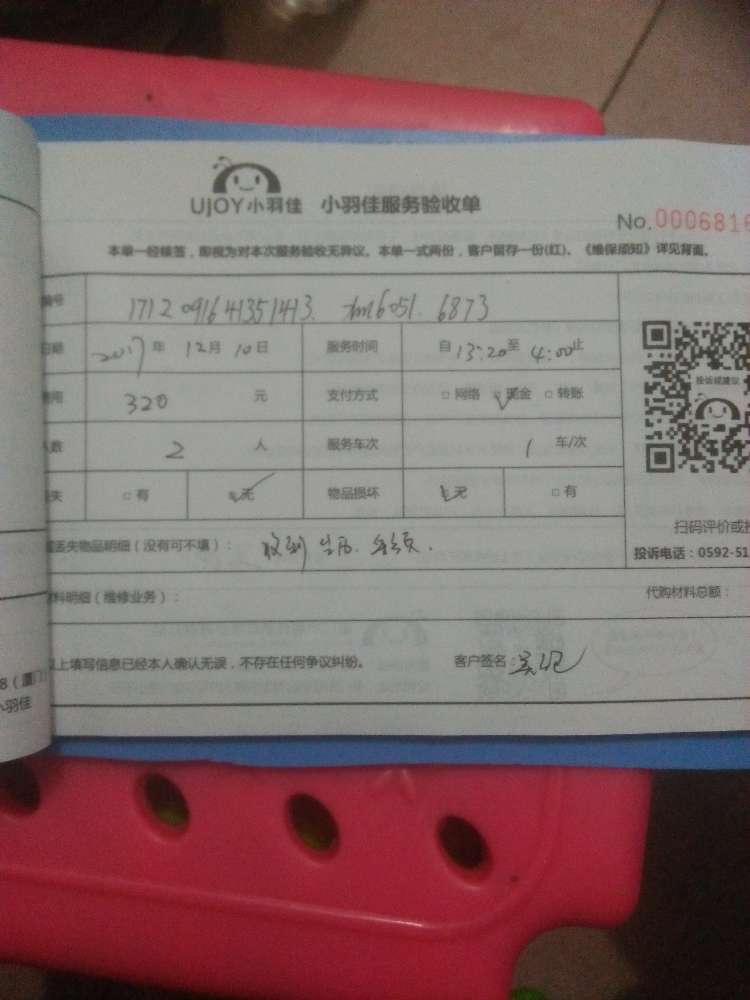 UJOY小羽佳 小羽佳服务验收单
No.0006816
本单一经接签，即视为对本次服务验收无异议。本单一式两份，客户留存一份(红)。《维保须知》详见背面。
编号 171209164135 1413. 6051. 6873
日期 2017年 12月 10日 服务时间 自13:20至4:00止
费用 320 元 支付方式 □网络 □现金 □转账
人数 2 人 服务车次 1 车/次
失 □有 □无 物品损坏 □无 □有
投诉或建议
扫码评价或投
丢失物品明细（没有可不填）： 收到
投诉电话：0592-51
料明细（维修业务）： 代购材料总额：
上填写信息已经本人确认无误，不存在任何争议纠纷。 客户签名：吴
8（厦门
小羽佳